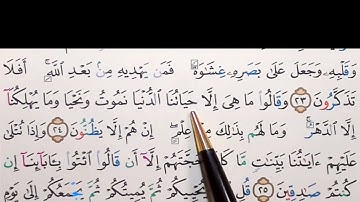 وَقَلْبِهِۦ وَجَعَلَ عَلَىٰ بَصَرِهِۦ غِشَٰوَةً فَمَن يَهْدِيهِ مِنۢ بَعْدِ ٱللَّهِ ۚ أَفَلَا
تَذَكَّرُونَ ٢٣ وَقَالُوا۟ مَا هِىَ إِلَّا حَيَاتُنَا ٱلدُّنْيَا نَمُوتُ وَنَحْيَا وَمَا يُهْلِكُنَآ
إِلَّا ٱلدَّهْرُ ۚ وَمَا لَهُم بِذَٰلِكَ مِنْ عِلْمٍ ۖ إِنْ هُمْ إِلَّا يَظُنُّونَ ٢٤ وَإِذَا تُتْلَىٰ
عَلَيْهِمْ ءَايَٰتُنَا بَيِّنَٰتٍ مَّا كَانَ حُجَّتَهُمْ إِلَّآ أَن قَالُوا۟ ٱئْتُوا۟ بِـَٔابَآئِنَآ إِن
كُنتُمْ صَٰدِقِينَ ٢٥ قُلِ يُحْيِيكُمْ ثُمَّ يُمِيتُكُمْ ثُمَّ يَجْمَعُكُمْ إِلَىٰ يَوْمِ